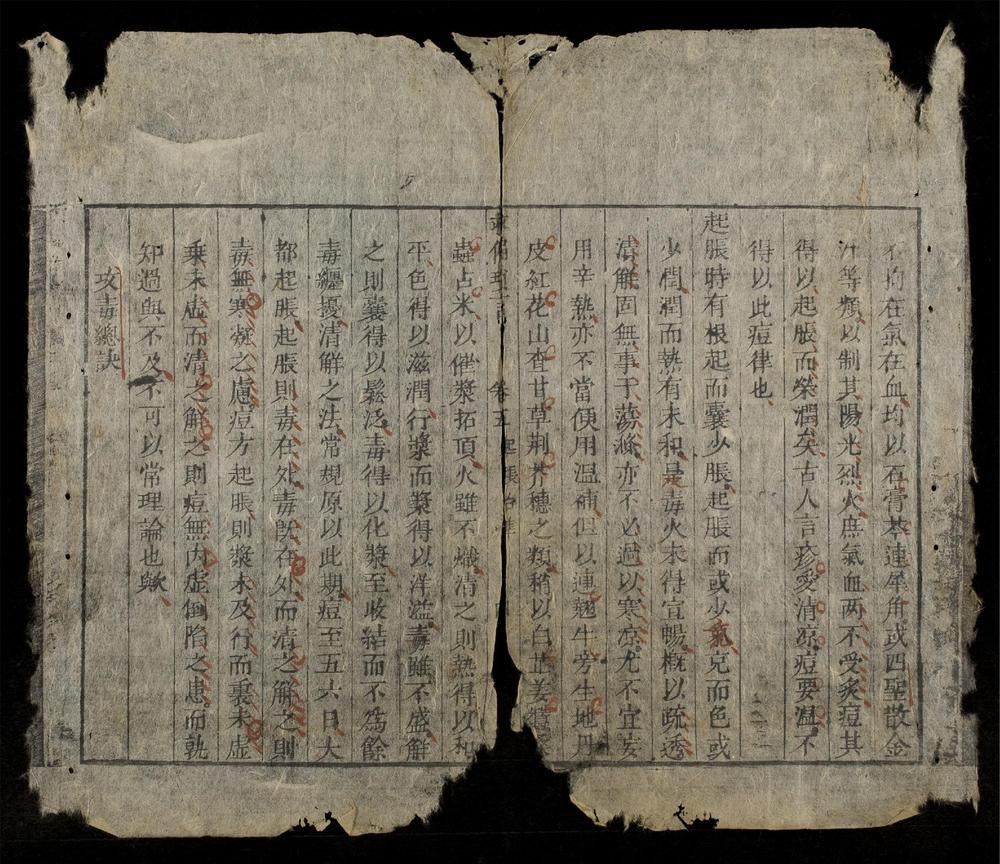 不拘在氣在血均以石膏芩連犀角或四聖散金
汁等類以制其陽光烈火庶氣血两不受炙痘其
得以起脹而榮潤矣古人言疹愛清凉痘要温不
得以此痘律也
起脹時有根起而囊少脹起脹而或少氣克而色或
少潤潤而熱有未和是毒火未得宣暢概以疏透
清解固無事于蕩滌亦不必過以寒凉尤不宜妄
用辛熱亦不當便用温補但以連翹牛旁生地丹
皮紅花山查甘草荆芥穗之類稍以白芷姜蠶
卷五 起脹
蟲占米以催漿拓頂火雖不熾清之則熱得以和
平色得以滋潤行漿而漿得以洋溢毒雖不盛解
之則囊得以鬆泛毒得以化漿至收結而不為餘
毒纏擾清解之法常規原以此期痘至五六日大
都起脹起脹則毒在外毒旣在外而清之解之則
毒無寒凝之慮痘方起脹則漿未及行而裏未虛
乗未虛而清之解之則痘無内虛倒陷之患而孰
知過與不及不可以常理論也歟
攻毒總訣